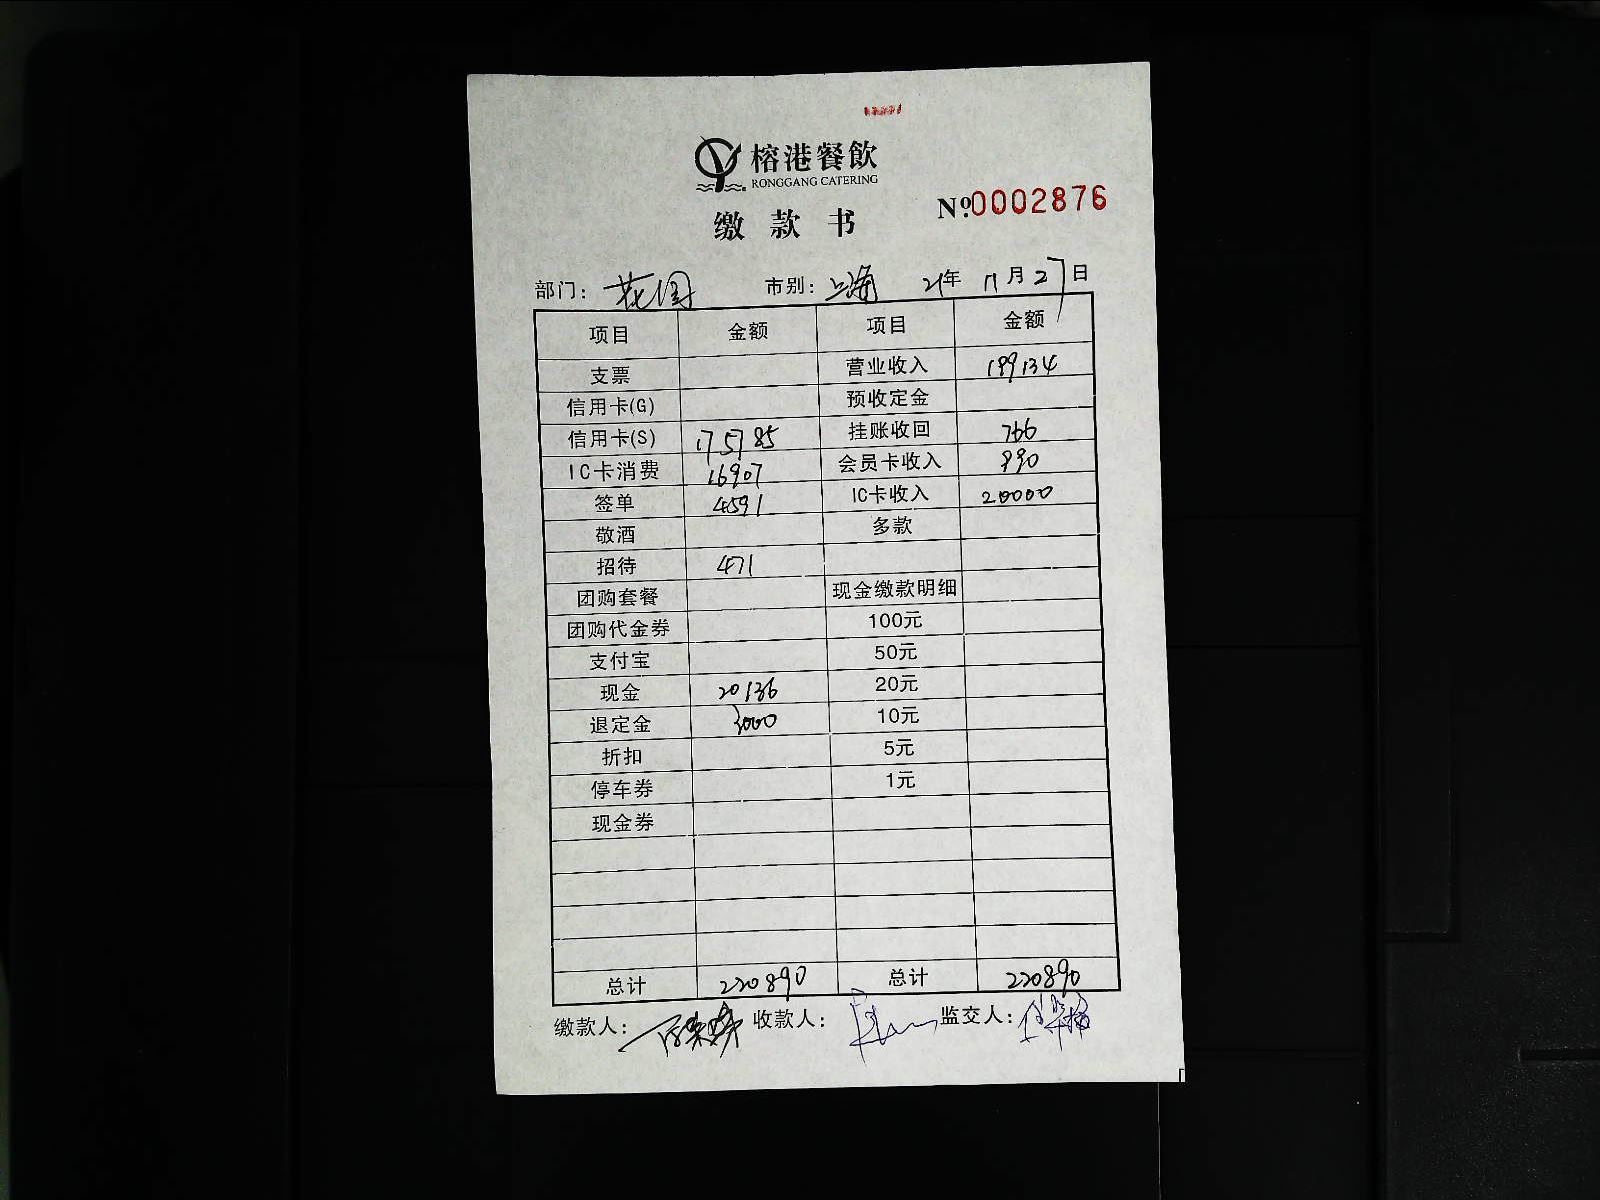 榕港餐飲
RONGGANG CATERING
缴款书
№0002876
部门：花园 市别：上海 21年 11月27日
项目 金额 项目 金额
支票 营业收入 199134
信用卡(G) 预收定金
信用卡(S) 175785 挂账收回 766
IC卡消费 16907 会员卡收入 990
签单 4591 IC卡收入 20000
敬酒 多款
招待 471
团购套餐 现金缴款明细
团购代金券 100元
支付宝 50元
现金 20136 20元
退定金 3000 10元
折扣 5元
停车券 1元
现金券
总计 220890 总计 220890
缴款人： 收款人： 监交人：